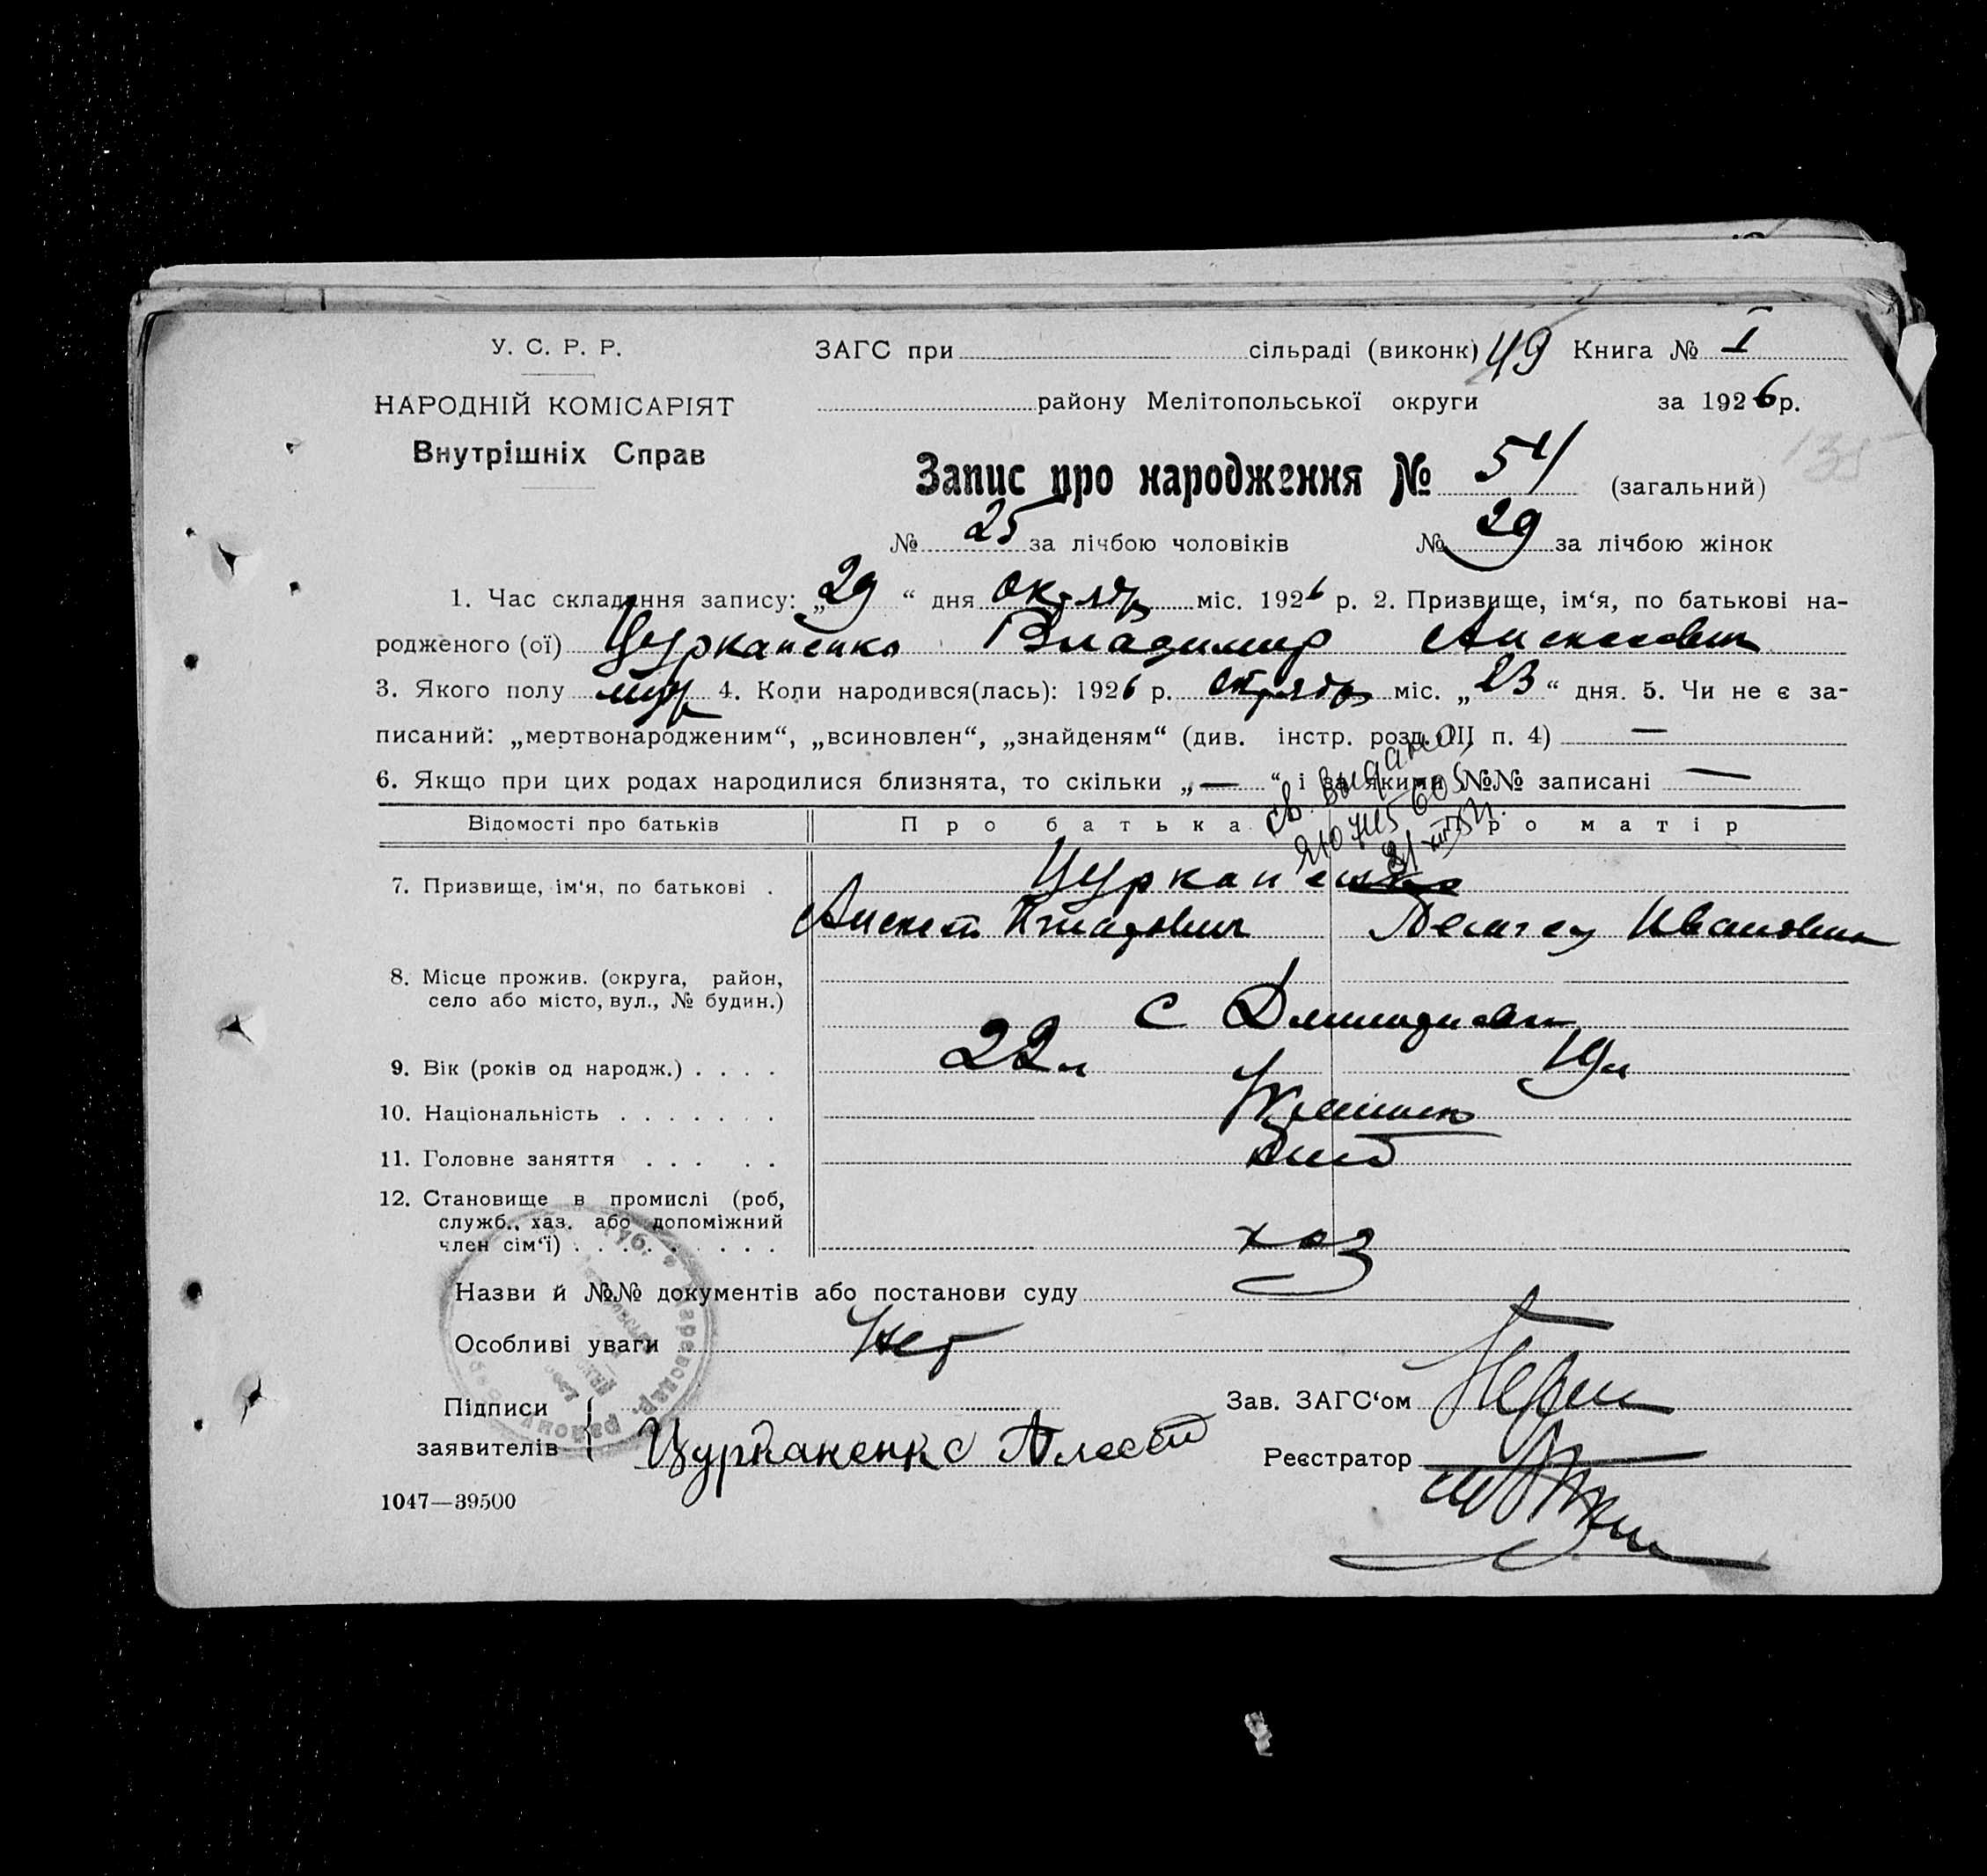 У. С. Р. Р.
НАРОДНІЙ КОМІСАРІЯТ
Внутрішніх Справ
ЗАГС при сільраді (виконк) 49 Книга № I
району Мелітопольської округи за 1926 р.
135
Запис про народження № 54 (загальний)
№ 25 за лічбою чоловіків № 29 за лічбою жінок
1. Час складання запису: „29“ дня октябр міс. 1926 р. 2. Призвище, ім‘я, по батькові на-
родженого (ої) Цурканенко Владимир Алексеевич
3. Якого полу муж 4. Коли народився(лась): 1926 р. октябр міс. „23“ дня. 5. Чи не є за-
писаний: „мертвонародженим“, „всиновлен“, „знайденям“ (див. інстр. розд. III п. 4) —
6. Якщо при цих родах народилися близнята, то скільки „—“ і за якими №№ записані —
св. выдано
Відомості про батьків Про батька Про матір
7. Призвище, ім‘я, по батькові . Цурканенко
Алексей Ивановна
8. Місце прожив. (округа, район,
село або місто, вул., № будин.) с
9. Вік (років од народж.) . . . . 22 л 19 л
10. Національність . . . . . . .
11. Головне заняття . . . . .
12. Становище в промислі (роб,
служб., хаз. або допоміжний
член сім‘ї) . . . . . . . . хоз
Назви й №№ документів або постанови суду
Особливі уваги Нет
Підписи
заявителів Цурканенко Алексей
Зав. ЗАГС‘ом
Реєстратор
1047—39500